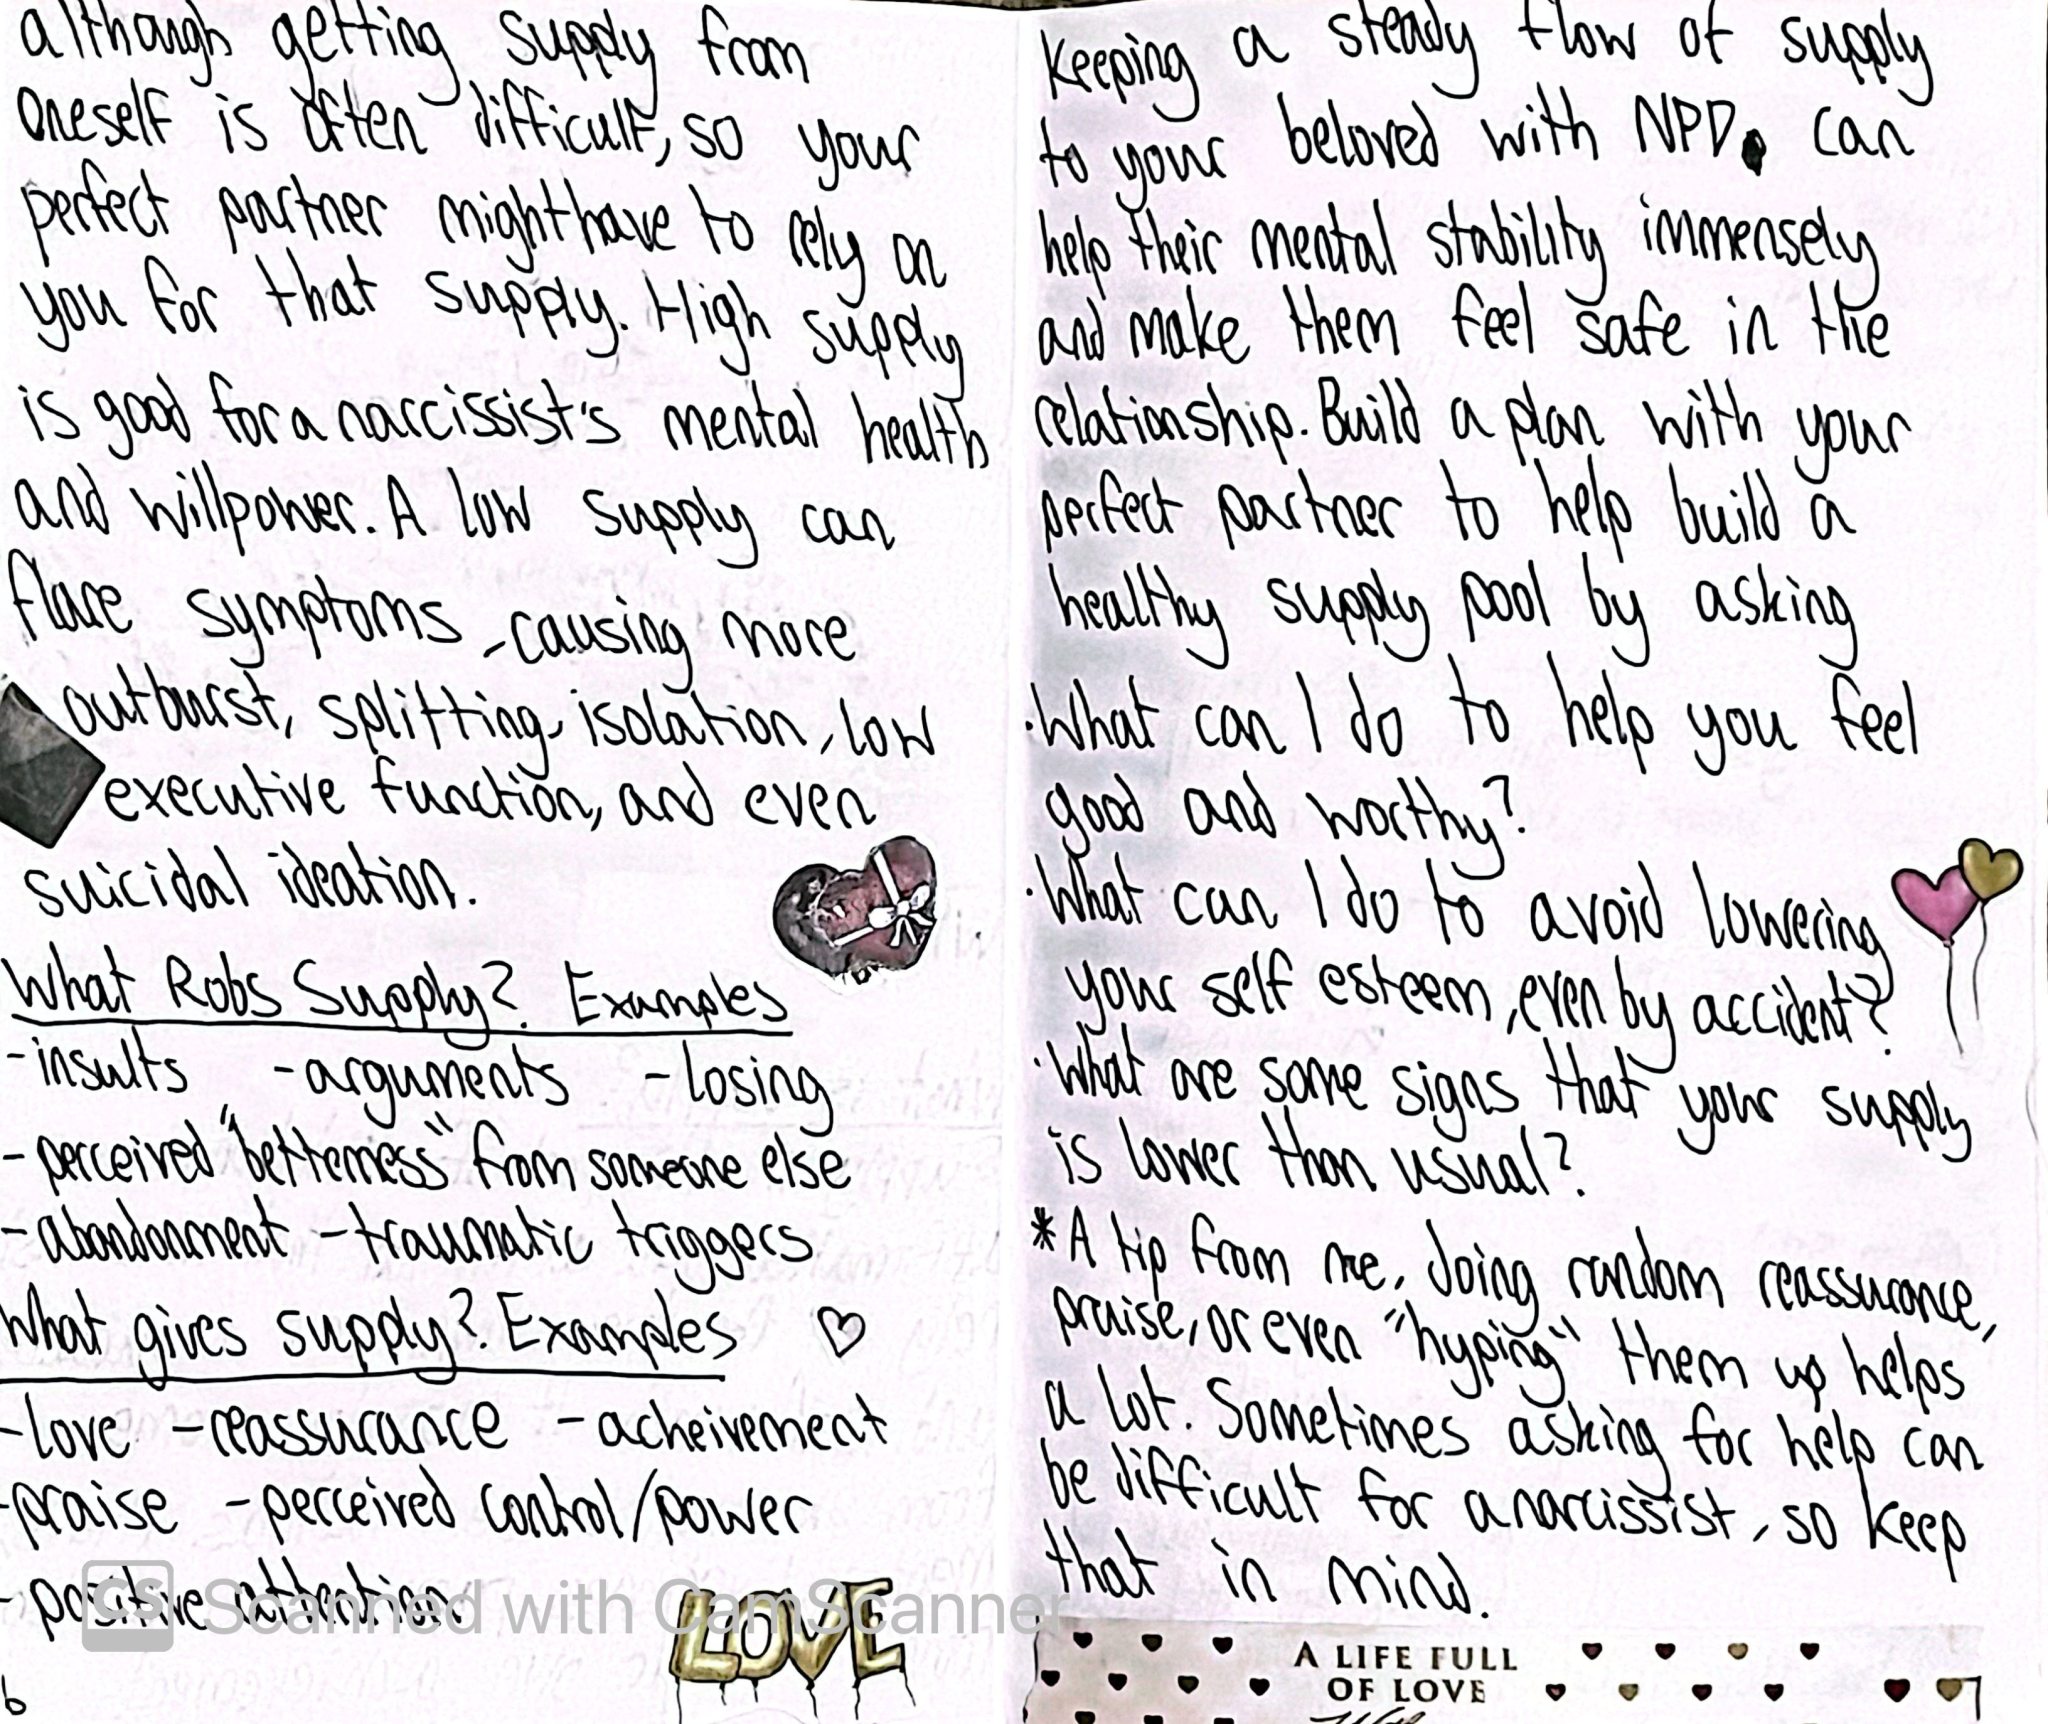 although getting supply from
oneself is often difficult, so your
perfect partner might have to rely on
you for that supply. High supply
is good for a narcissist's mental health
and willpower. A low supply can
flare symptoms, causing more
outburst, splitting, isolation, low
executive function, and even
suicidal ideation.
What Robs Supply? Examples
-insults -arguments -losing
-perceived "betterness" from someone else
-abandonment -traumatic triggers
What gives supply? Examples
-love -reassurance -acheivement
-praise -perceived control/power
-positive attention
LOVE
CS Scanned with CamScanner
6
Keeping a steady flow of supply
to your beloved with NPD can
help their mental stability immensely
and make them feel safe in the
relationship. Build a plan with your
perfect partner to help build a
healthy supply pool by asking
·What can I do to help you feel
good and worthy?
·What can I do to avoid lowering
your self esteem, even by accident?
·What are some signs that your supply
is lower than usual?
*A tip from me, doing random reassurance,
praise, or even "hyping" them up helps
a lot. Sometimes asking for help can
be difficult for a narcissist, so keep
that in mind.
A LIFE FULL
OF LOVE
7